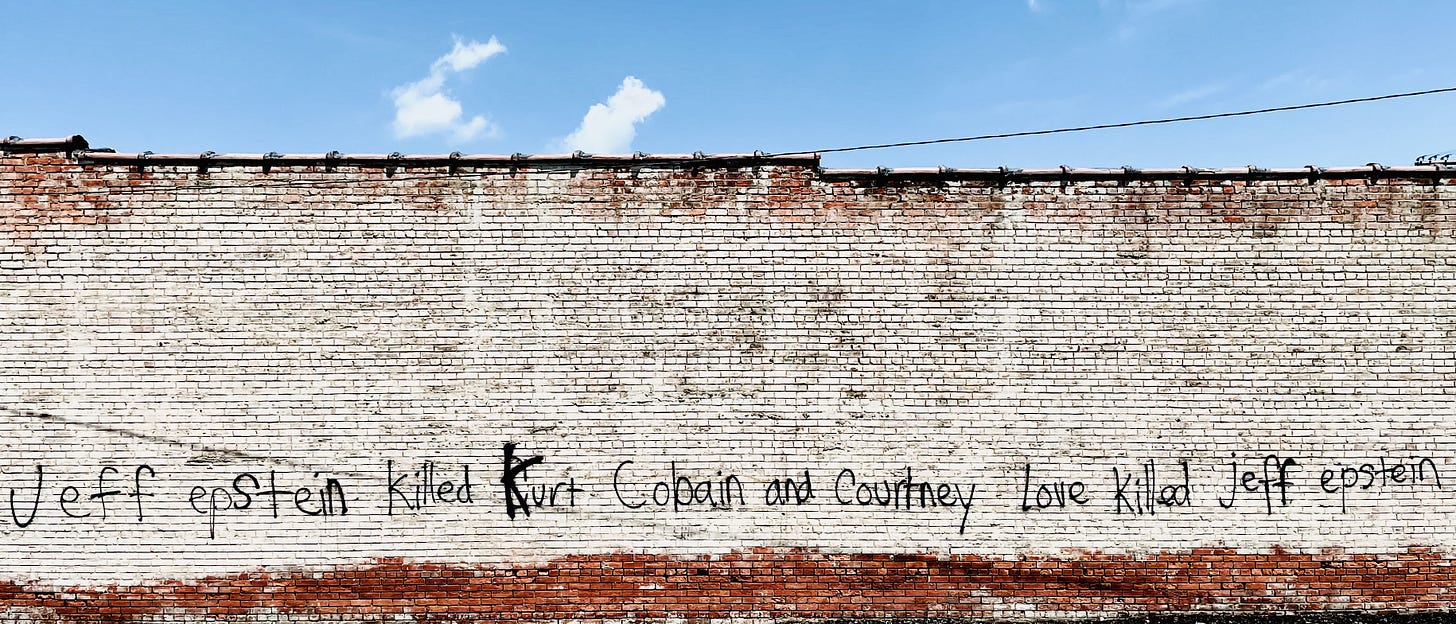 Jeff epstein killed Kurt Cobain and Courtney Love killed jeff epstein